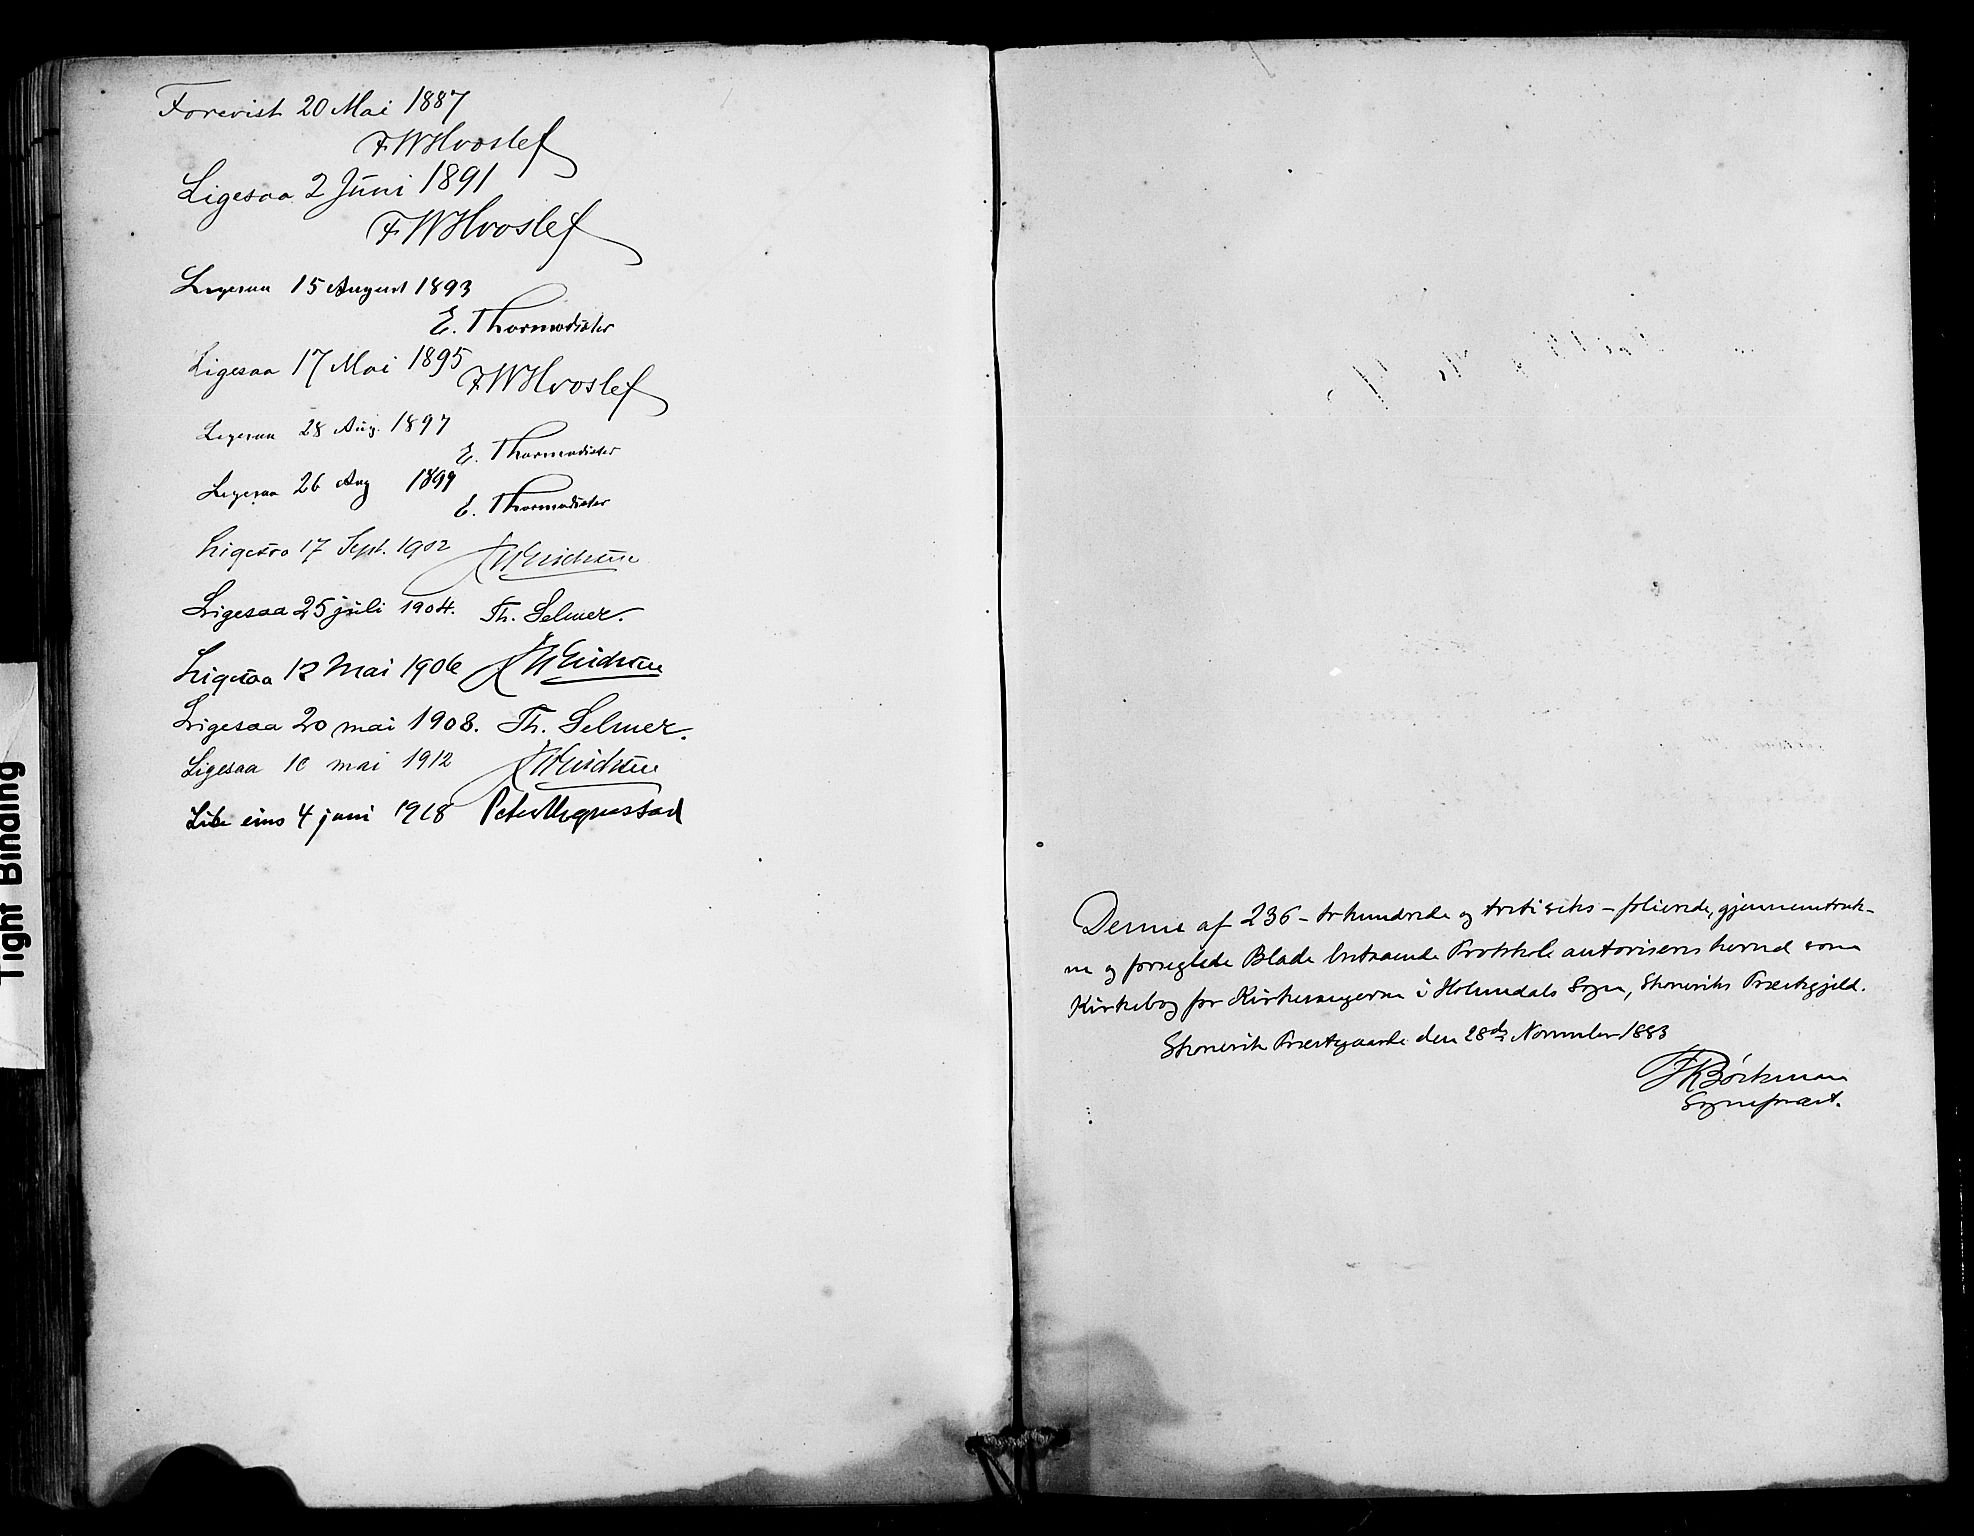 Forevist 20 Mai 1887
FWHvoslef
Ligesaa 2 Juni 1891
FWHvoslef
Ligesaa 15 August 1893
E. Thormodsæter
Ligesaa 17 Mai 1895 FWHvoslef
Ligesaa 28 Aug. 1897
E. Thormodsæter
Ligesaa 26 Aug 1899
E. Thormodsæter
Ligesaa 17 Sept. 1902
Ligesaa 25 juli 1904. Th. Selmer.
Ligesaa Mai 1906
Ligesaa 20 mai 1908. Th. Selmer.
Ligesaa mai 1912
4 juni 1918 Peter Hognestad
Tight Binding
Denne af 236 – tohundrede og treti seks – folierede, gjennemtruk-
ne og forseglede Blade bestaaende Protokol autoriseres herved som
Kirkebog for Kirkesangeren i Holmedals Sogn, Skoneviks Præstegjeld.
Skonevik Præstegaard den 28de November 1883
Börkman
Sognepræst.